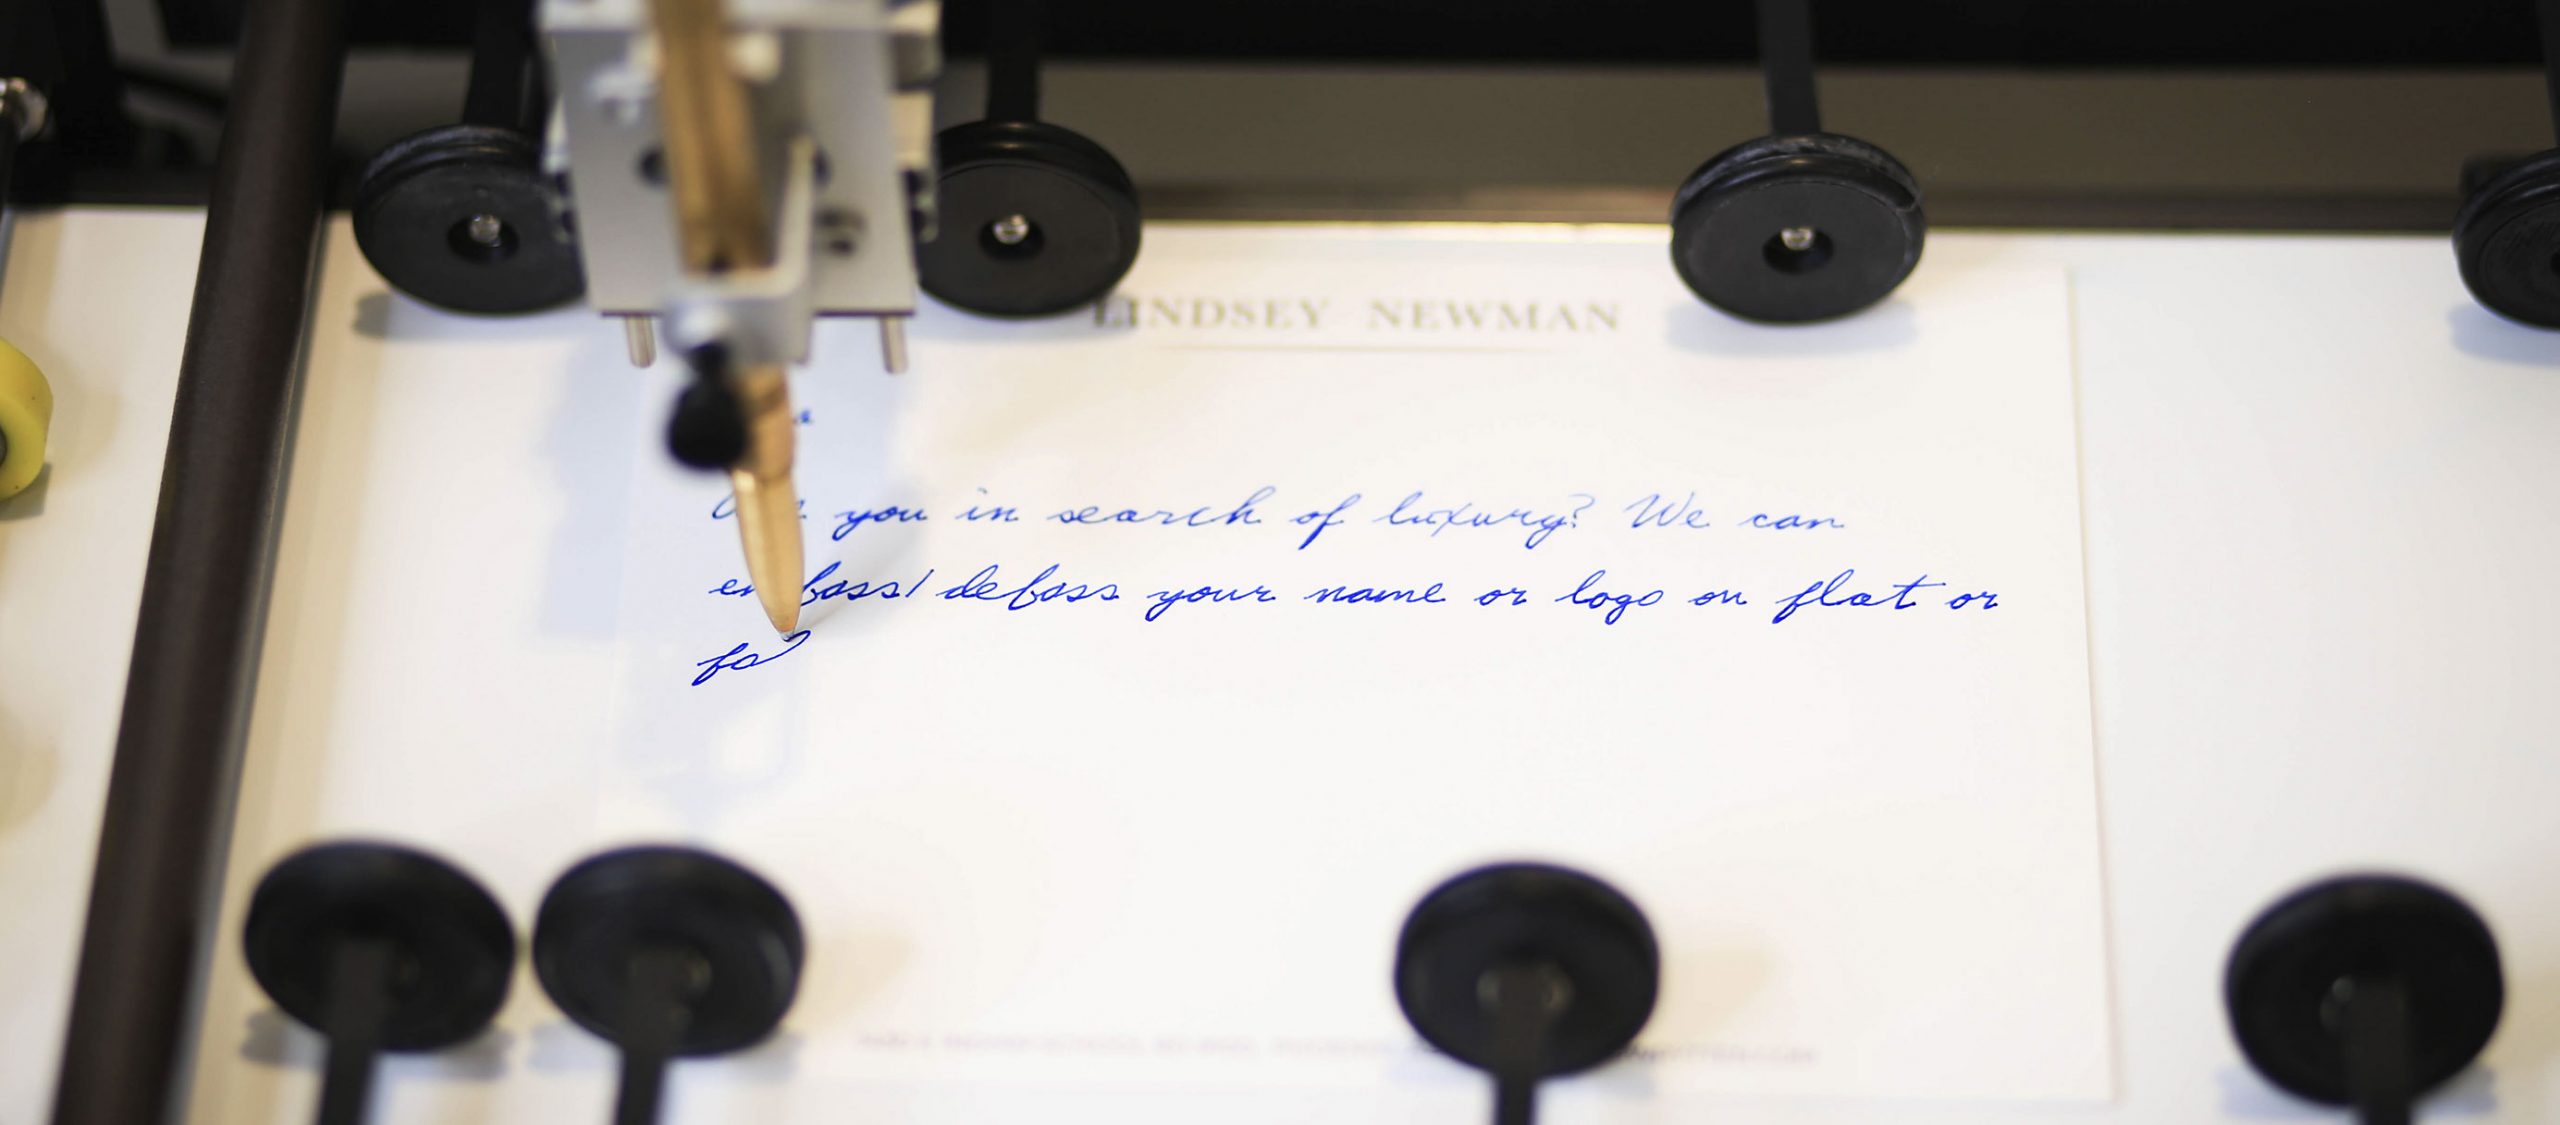 LINDSEY NEWMAN
you in search of luxury? We can
emboss/deboss your name or logo on flat or
fo